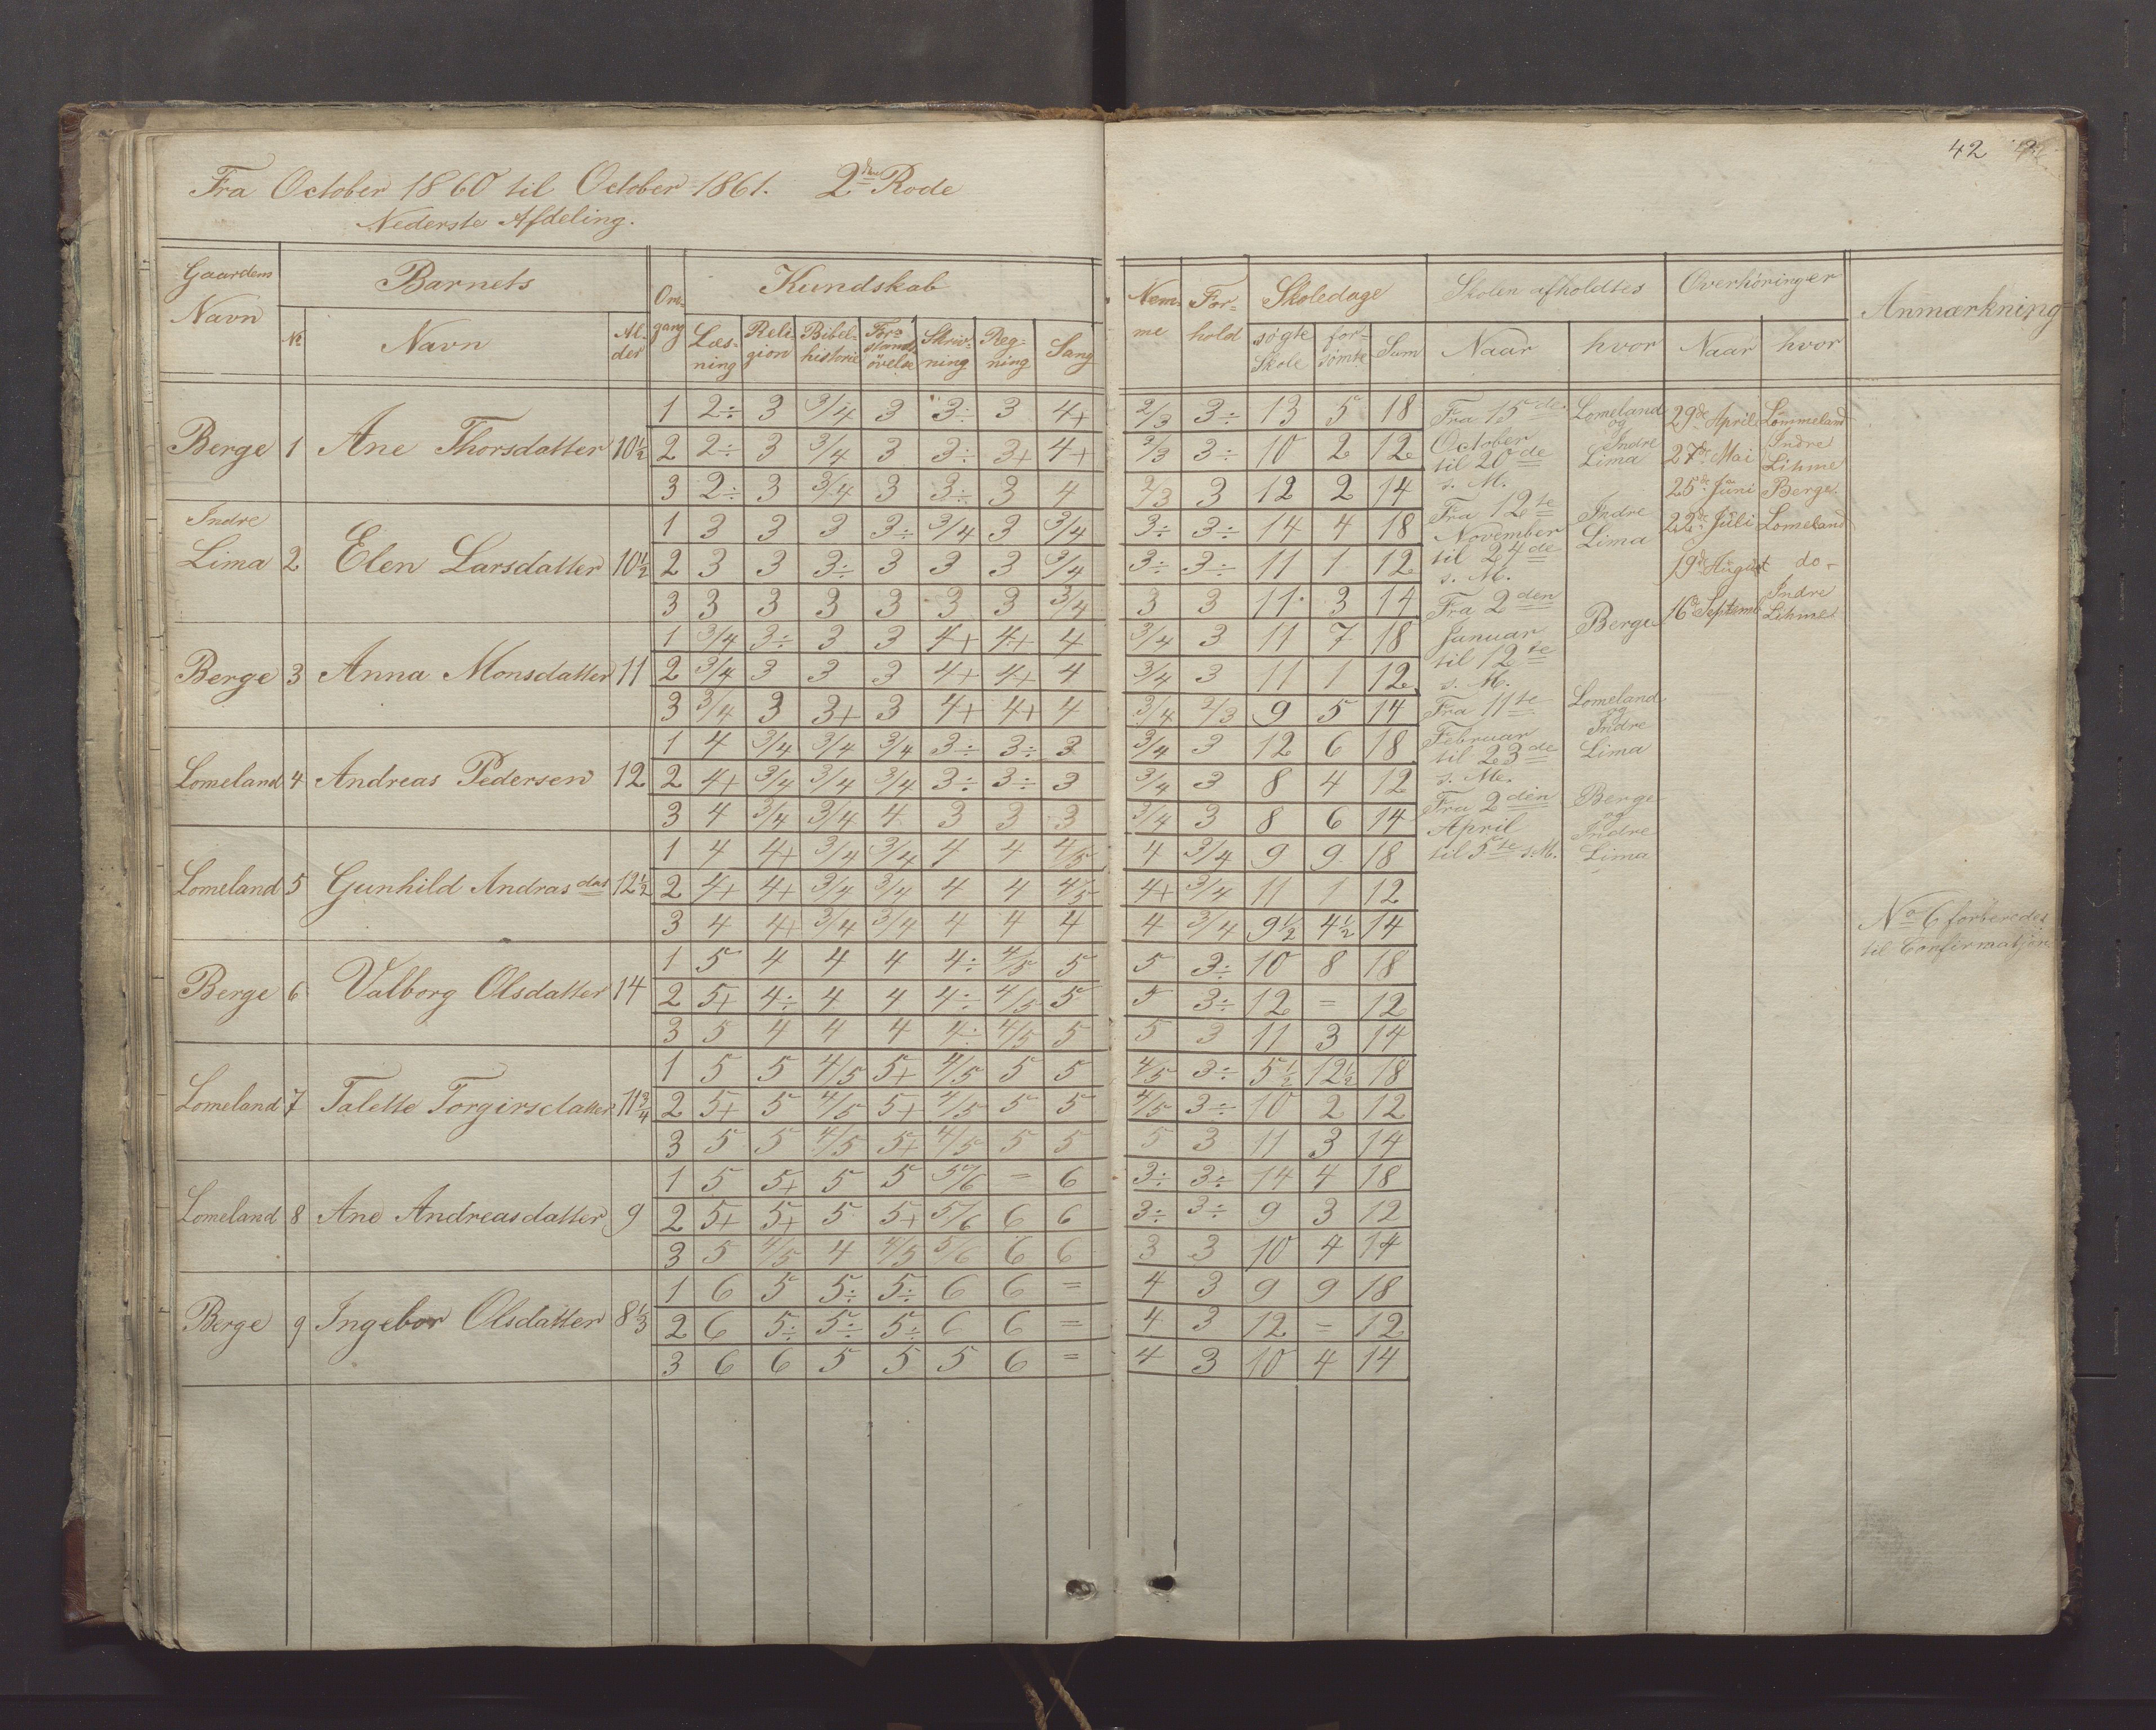 42
Fra October 1860 til October 1861. 2den Rode
Nederste Afdeling.
Gaardens Navn | Barnets | Om- gang | Kundskab | Nem- me | For- hold | Skoledage | Skolen afholdtes | Overhöringer | Anmærkning
No | Navn | Al- der | Læs- ning | Reli- gion | Bibel- historie | For- stands- övelse | Skriv- ning | Reg- ning | Sang | søgte Skole | for- sömte | Sum | Naar | hvor | Naar | hvor
Berge 1 Ane Thorsdatter 10½
1 2÷ 3 3/4 3 3÷ 3 4+ 2/3 3÷ 13 5 18
2 2÷ 3 3/4 3 3÷ 3+ 4+ 2/3 3÷ 10 2 12
3 2÷ 3 3/4 3 3÷ 3 4 2/3 3 12 2 14
Indre Lima 2 Elen Larsdatter 10½
1 3 3 3 3÷ 3/4 3 3/4 3÷ 3÷ 14 4 18
2 3 3 3÷ 3 3 3 3/4 3÷ 3÷ 11 1 12
3 3 3 3 3 3 3 3/4 3 3 11 3 14
Berge 3 Anna Monsdatter 11
1 3/4 3÷ 3 3 4+ 4+ 4 3/4 3 11 7 18
2 3/4 3 3 3 4+ 4+ 4 3/4 3 11 1 12
3 3/4 3 3+ 3 4+ 4+ 4 3/4 2/3 9 5 14
Lomeland 4 Andreas Pedersen 12
1 4 3/4 3/4 3/4 3÷ 3÷ 3 3/4 3 12 6 18
2 4+ 3/4 3/4 3/4 3÷ 3÷ 3 3/4 3 8 4 12
3 4 3/4 3/4 4 3 3 3 3/4 3 8 6 14
Lomeland 5 Gunhild Andrasdat 12½
1 4 4+ 3/4 3/4 4 4 4/5 4 3/4 9 9 18
2 4+ 4+ 3/4 3/4 4 4 4/5 4+ 3/4 11 1 12
3 4 4+ 3/4 3/4 4 4 4 4 3/4 9½ 4½ 14
Berge 6 Valborg Olsdatter 14
1 5 4 4 4 4÷ 4/5 5 5 3÷ 10 8 18
2 5+ 4÷ 4 4 4÷ 4/5 5 5 3÷ 12 = 12
3 5 4 4 4 4÷ 4/5 5 5 3 11 3 14
Lomeland 7 Talette Torgirsdatter 11¾
1 5 5 4/5 5+ 4/5 5 5 4/5 3÷ 5½ 12½ 18
2 5+ 5 4/5 5+ 4/5 5 5 4/5 3÷ 10 2 12
3 5 5 4/5 5+ 4/5 5 5 5 3 11 3 14
Lomeland 8 Ane Andreasdatter 9
1 5 5+ 5 5 5/6 = 6 3÷ 3÷ 14 4 18
2 5+ 5+ 5 5+ 5/6 6 6 3÷ 3÷ 9 3 12
3 5 4/5 4 4/5 5/6 6 6 3 3 10 4 14
Berge 9 Ingebor Olsdatter 8⅓
1 6 5 5÷ 5÷ 6 6 = 4 3 9 9 18
2 6 5÷ 5÷ 5÷ 6 6 = 4 3 12 = 12
3 6 6 5 5 5 6 = 4 3 10 4 14
Fra 15de
October
til 20de
s. M.
Lomeland
og
Indre
Lima
Fra 12te
November
til 24de
s. M.
Indre
Lima
Fra 2den
Januar
til 12te
s. M.
Berge
Fra 11te
Februar
til 23de
s. M.
Lomeland
og
Indre
Lima
Fra 2den
April
til 5te s. M.
Berge
og
Indre
Lima
29de April Lommeland
27de Mai Indre Lihme
25de Juni Berge
22de Juli Lomeland
19de August do-
16de Septemb Indre Lihme
No 6 forberedes
til Confirmatjon